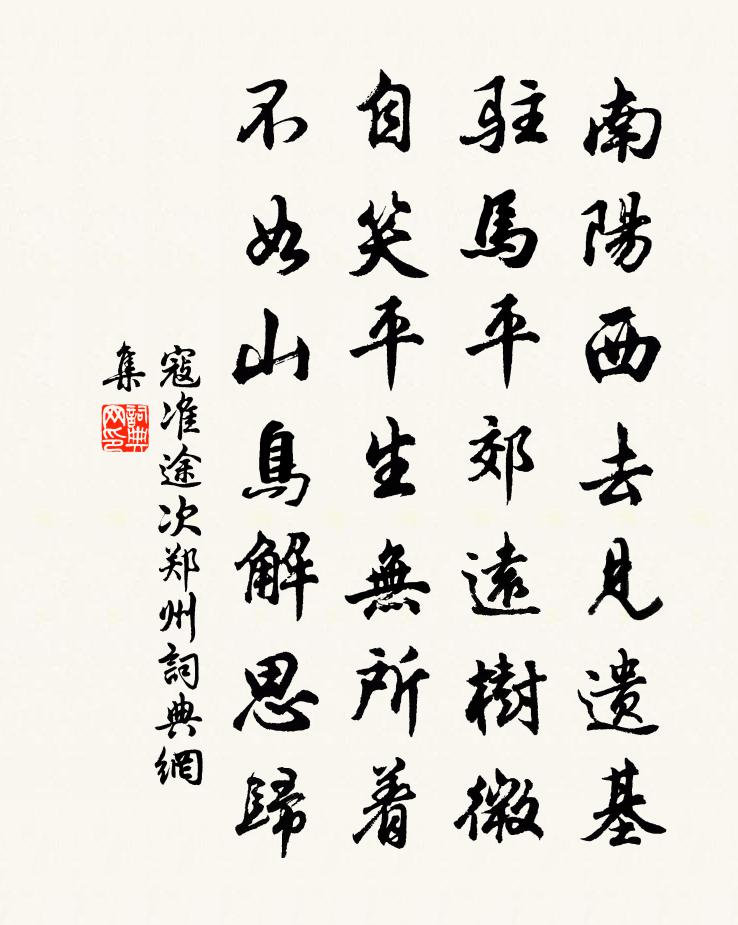 南陽西去見遗基
駐馬平郊遠樹微
自笑平生無所着
不如山鳥解思歸
寇准途次郑州詞典網
集
詞典
网印